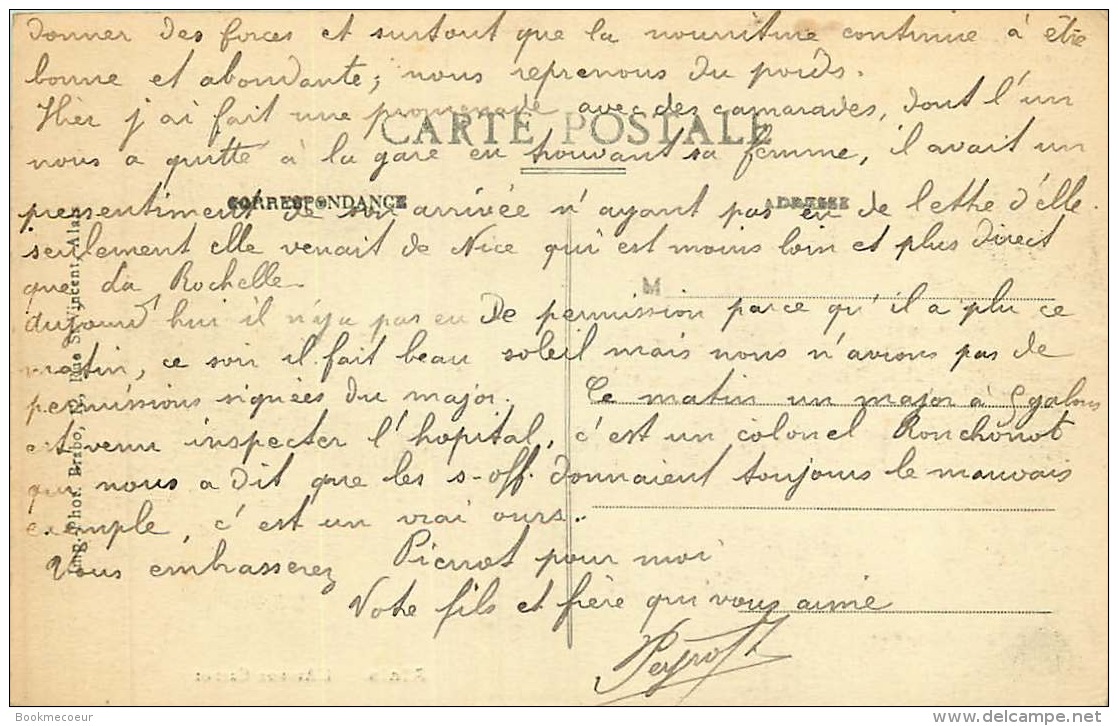 donner des forces et surtout que la nourriture continue à être
bonne et abondante; nous reprenons du poids.
Hier j'ai fait une promenade avec des camarades, dont l'un
CARTE POSTALE
nous a quitté à la gare en trouvant sa femme, il avait un
CORRESPONDANCE
ADRESSE
pressentiment de son arrivée n'ayant pas eu de lettre d'elle.
seulement elle venait de Nice qui est moins loin et plus direct
que La Rochelle.
M
aujourd'hui il n'y a pas eu de permission parce qu'il a plu ce
matin, ce soir il fait beau soleil mais nous n'avions pas de
permissions signées du major. Ce matin un major à 5 galons
est venu inspecter l'hopital, c'est un colonel Ronchonot
qui nous a dit que les s-off. donnaient toujours le mauvais
exemple, c'est un vrai ours..
Vous embrasserez Pierrot pour moi
Votre fils et frère qui vous aime
Peyrot
Imp. Phot. Brabo, Rue St-Vincent, Alais
Bookmecoeur
delcampe.net